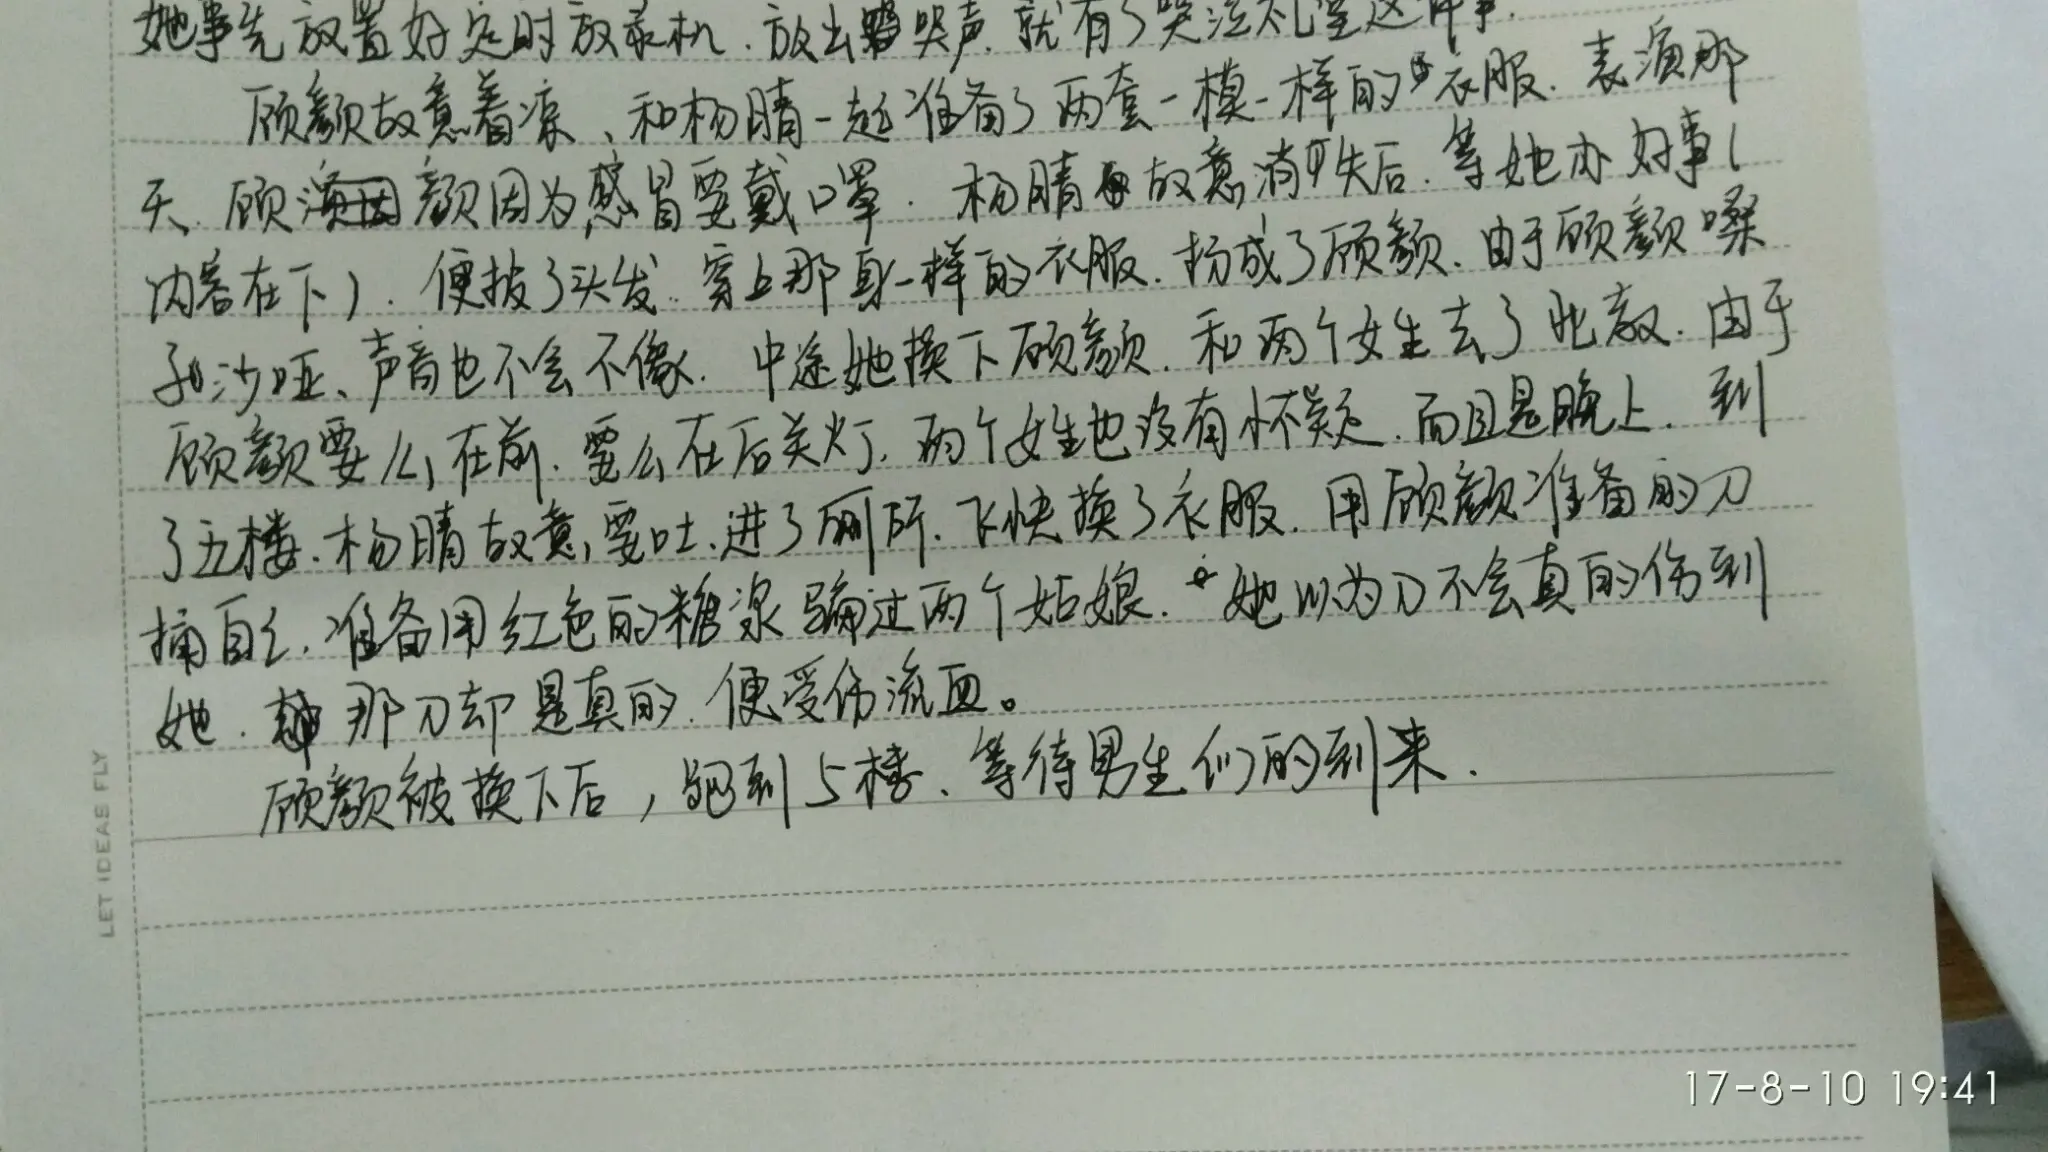 她事先放置好定时放录机.放出哭声.就有了哭泣礼堂这件事.
顾颜故意着凉、和杨晴一起准备了两套一模一样的衣服.表演那
天、顾颜因为感冒要戴口罩.杨晴故意消失后.等她办好事(
内容在下).便披了头发.穿上那身一样的衣服.扮成了顾颜.由于顾颜嗓
子沙哑、声音也不会不像.中途她换下顾颜.和两个女生去了北教.由于
顾颜要么在前.要么在后关灯.两个女生也没有怀疑.而且是晚上.到
了五楼.杨晴故意要吐.进了厕所.飞快换了衣服.用顾颜准备的刀
捅自己.准备用红色的糖浆骗过两个姑娘.她以为刀不会真的伤到
她.那刀却是真的.便受伤流血。
顾颜被换下后,跑到5楼、等待男生们的到来.
LET IDEAS FLY
17-8-10 19:41